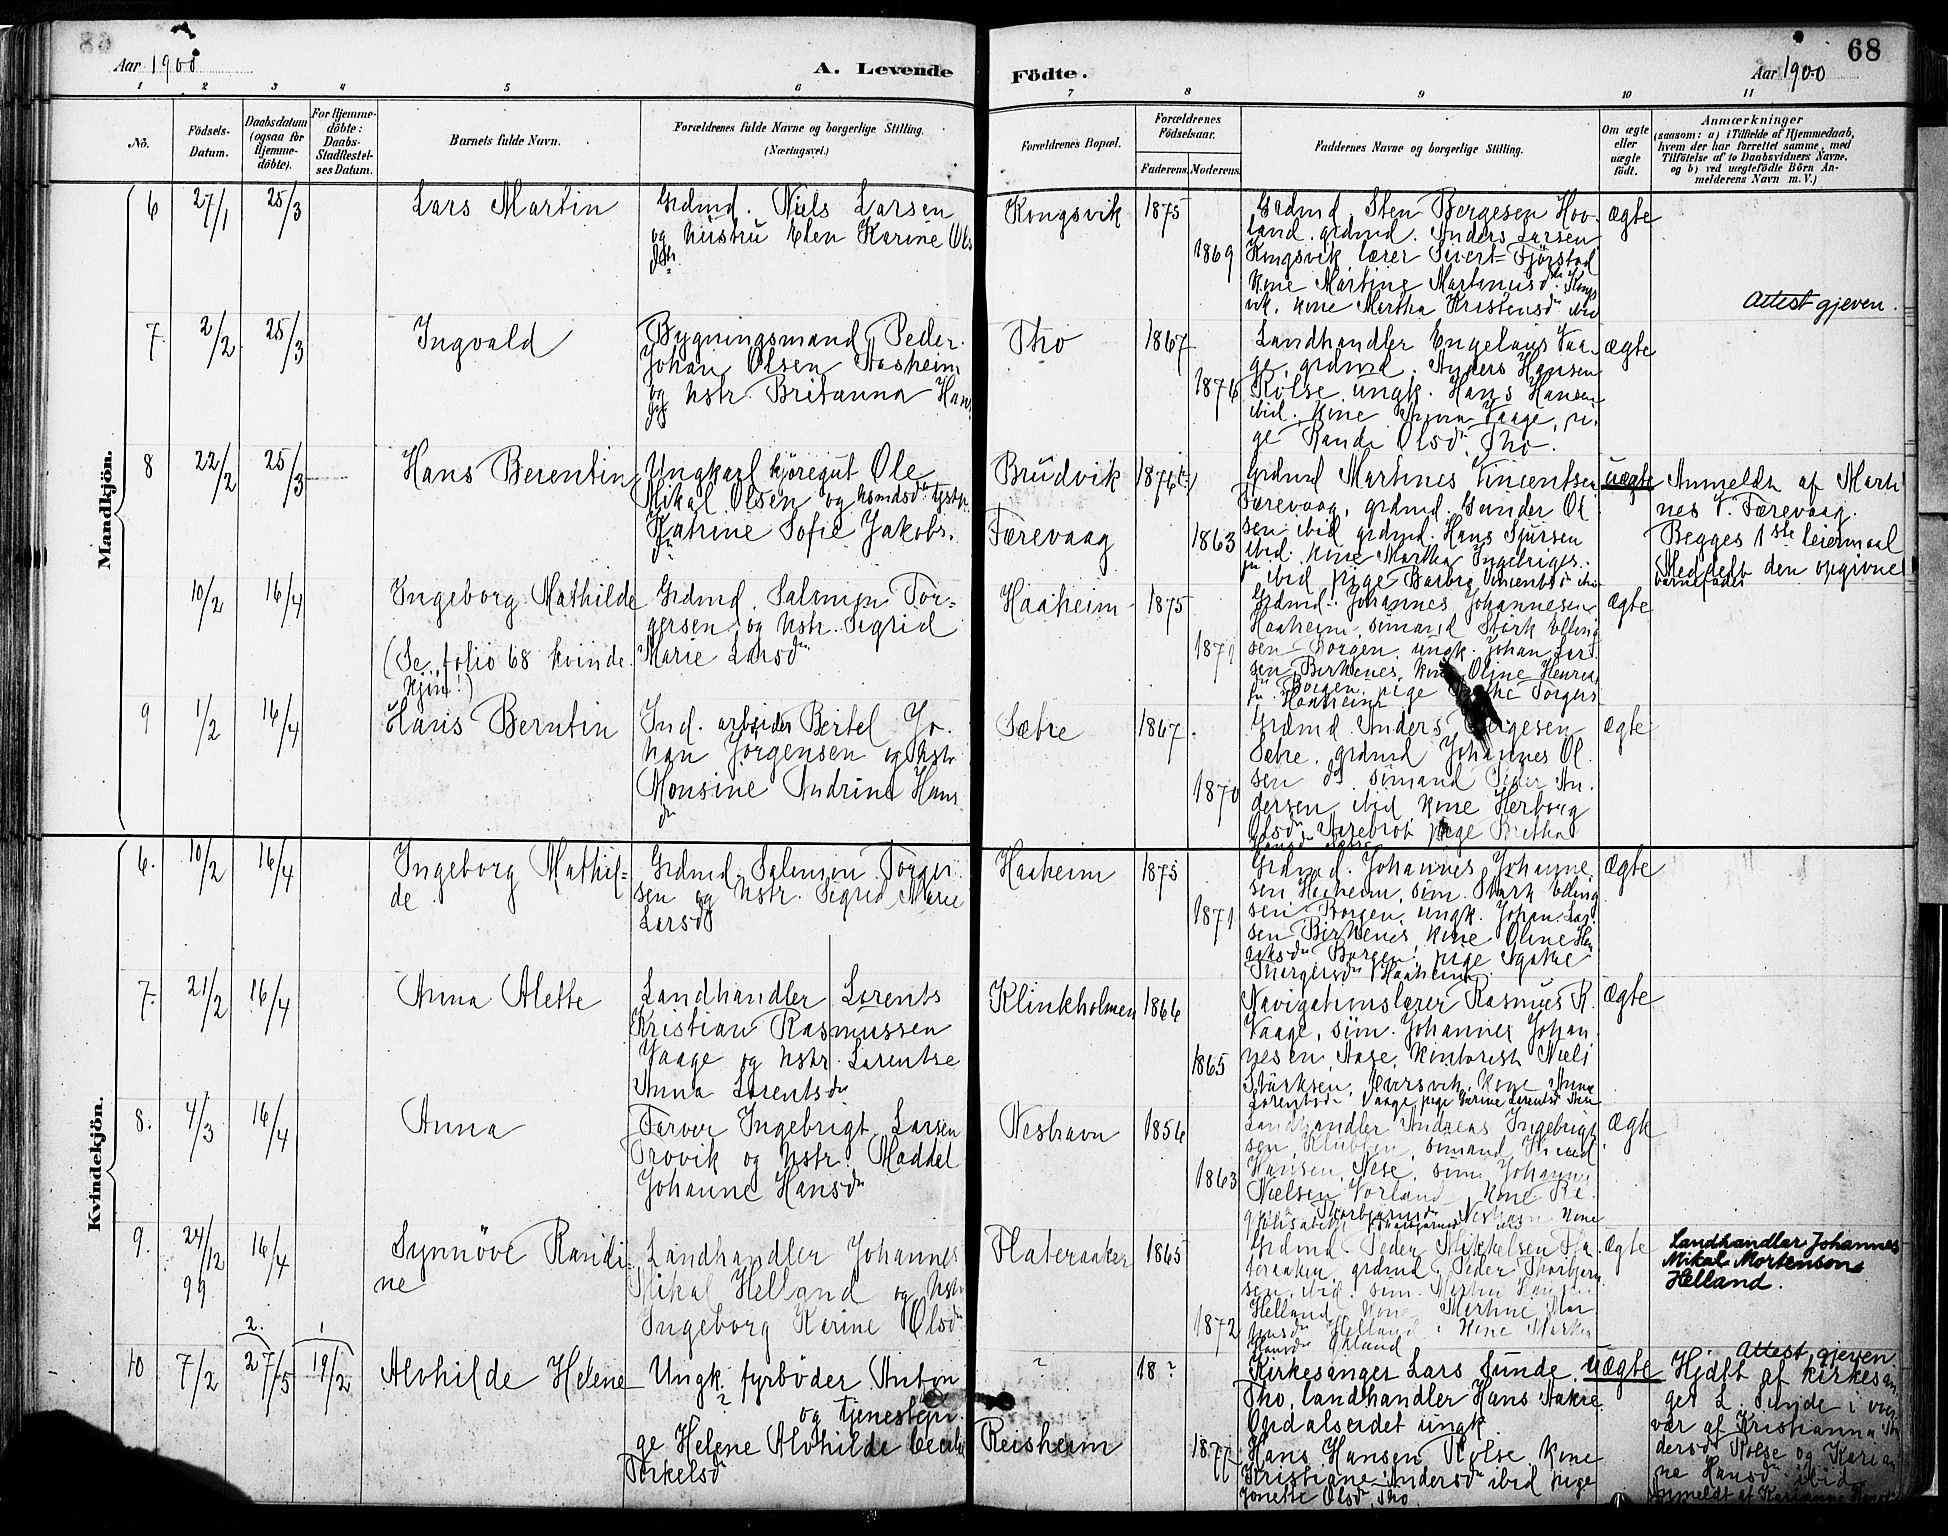 Aar 1900
A. Levende
Födte.
68
Aar 1900
1 2 3 4 5 6 7 8 9 10 11
No.
Födsels-Datum.
Daabsdatum (ogsaa for Hjemmedöbte).
For Hjemmedöbte: Daabs-Stadfestelses Datum.
Barnets fulde Navn.
Forældrenes fulde Navne og borgerlige Stilling. (Næringsvei.)
Forældrenes Bopæl.
Forældrenes Födselsaar.
Faderens.
Moderens.
Faddernes Navne og borgerlige Stilling.
Om ægte eller uægte födt.
Anmærkninger
(saasom: a) i Tilfælde af Hjemmedaab,
hvem der har forrettet samme, med
Tilföielse af to Daabsvidners Navne,
og b) ved uægtefödte Börn Anmelderens Navn m. V.)
Mandkjön.
6 27/1 25/3 Lars Martin
Grdmd. Niels Larsen
og hustru Elen Karine Ols
dtr
Kongsvik 1875 1869
Grdmd. Sten Børgesen Hov-
land, grdmd. Anders Larsen
Kongsvik, lærer Sivert Fjörstad
kone Martine Martinusdr Kongs
vik, kone Martha Kristensdr ibid
ægte
Attest gjeven.
7 2/2 25/3 Ingvald
Bygningsmand Peder
Johan Olsen Aasheim
og hstr. Britanna Hans
Tho 1867 1876
Landhandler Engelaus Vaa-
ge, grdmd. Anders Hansen
Rolse, ungk. Hans Hansen
ibid, kone Anna Vaage, pi-
ge Randi Olsdr Tho.
ægte
8 22/2 25/3 Hans Berentin
Ungkarl kjöregut Ole
Mikal Olsen og
Katrine Sofie Jakobs.
dr
Brudvik
Færevaag
1863
Grdmd Martines Vincentsen
Færevaag, grdmd. Gunder Ol
sen ibid grdmd. Hans Sjursen
ibid. kone Martha Ingebriges-
dr ibid pige Barbra Vincentsdr ibid
uægte
Anmeldt af Marti
nes V. Færevaag.
Begges 1ste leiermaal
Meddelt den opgivne
barnefader
10/2 16/4 Ingeborg Mathilde
(Se folio 68 kvinde
kjön!)
Grdmd. Salomon Tor-
gersen og hstr. Sigrid
Marie Larsdr
Haaheim 1875 1871
Grdmd. Johannes Johannesen
Haaheim, sömand Störk Elling
sen Borgen, ungk. Johan Lar
sen Birkenes, kone Oline Henrik
dr Borgen, pige Torgers
dr Haaheim
ægte
9 1/2 16/4 Hans Berntin
Ind. arbeider Bertel Jo-
han Jörgensen og hstr
Monsine Andrine Hans
dr
Sætre 1867 1870
Grdmd Anders
Sætre, grdmd Johannes Ol
sen do sömand Peder An
dersen ibid, kone Herborg
Olsdr Aarebrot pige Britha
ægte
Kvindekjön.
6. 10/2 16/4 Ingeborg Mathil-
de
Grdmd. Salomon Torger
sen og hstr. Sigrid Marie
Larsdr
Haaheim 1875 1871
Grdmd. Johannes Johanne
sen Haaheim, söm. Störk Elling
sen Borgen, ungk. Johan Lar
sen Birkenes, kone Oline Hen
riksdr Borgen, pige Agathe
Thorgersdr Haaheim
ægte
7. 21/2 16/4 Anna Alette
Landhandler Lorents
Kristian Rasmussen
Vaage og hstr. Lorentse
Anna Lorentsdr
Klinkholmen 1866 1865
Navigationslærer Rasmus R.
Vaage, söm. Johannes Johan
nesen Aase, kontorist Niels
Störksen, Iversvik, kone Anna
Lorentsdr Vaage pige Karine Lorentsdr
ægte
8. 4/3 16/4 Anna
Farver Ingebrigt Larsen
Trovik og hstr. Maddel
Johanne Hansdr
Neshavn 1856 1863
Landhandler Andreas Ingebrigt
sen, Klubben, sömand
Hansen Nese, söm. Johannes
Nielsen Vorland, kone
Thorbjörnsdr Neshavn kone
ægte
9. 24/12 99 16/4 Synnöve Randi
ne
Landhandler Johannes
Mikal Helland og hstr
Ingeborg Karine Olsdr
Flateraaker 1865 1872
Grdmd. Peder Mikkelsen Fla
teraaker, grdmd. Peder Thorbjörn
sen ibid. söm. Martin Hansen
Helland kone Martine Mar
tinsdr Helland, kone Marken
Hansdr
ægte
Landhandlar Johannes
Mikal Mortenson
Helland.
Attest gjeven.
10 7/2 2. 27/5 1 19/2 Alvhilde Helene
Ungk. fyrböder Anton
? og tjenestepi-
ge Helene Alvhilde Cecilie
Torkelsdr
?
Reisheim
18 ? 1877
Kirkesanger Lars Sunde
Tho, landhandler Hans Aakre
Opdalseidet ungk
Hans Hansen Rolse, kone
Kristiane Andersdr ibid pige
Jonette Olsdr Tho
uægte
Hjdöbt af kirkesan
ger L. Sunde i over
vær af Kristianna An
dersdr Rolse og Karian
ne Hansdr ibid
Anmeldt af Karianne Hansdr